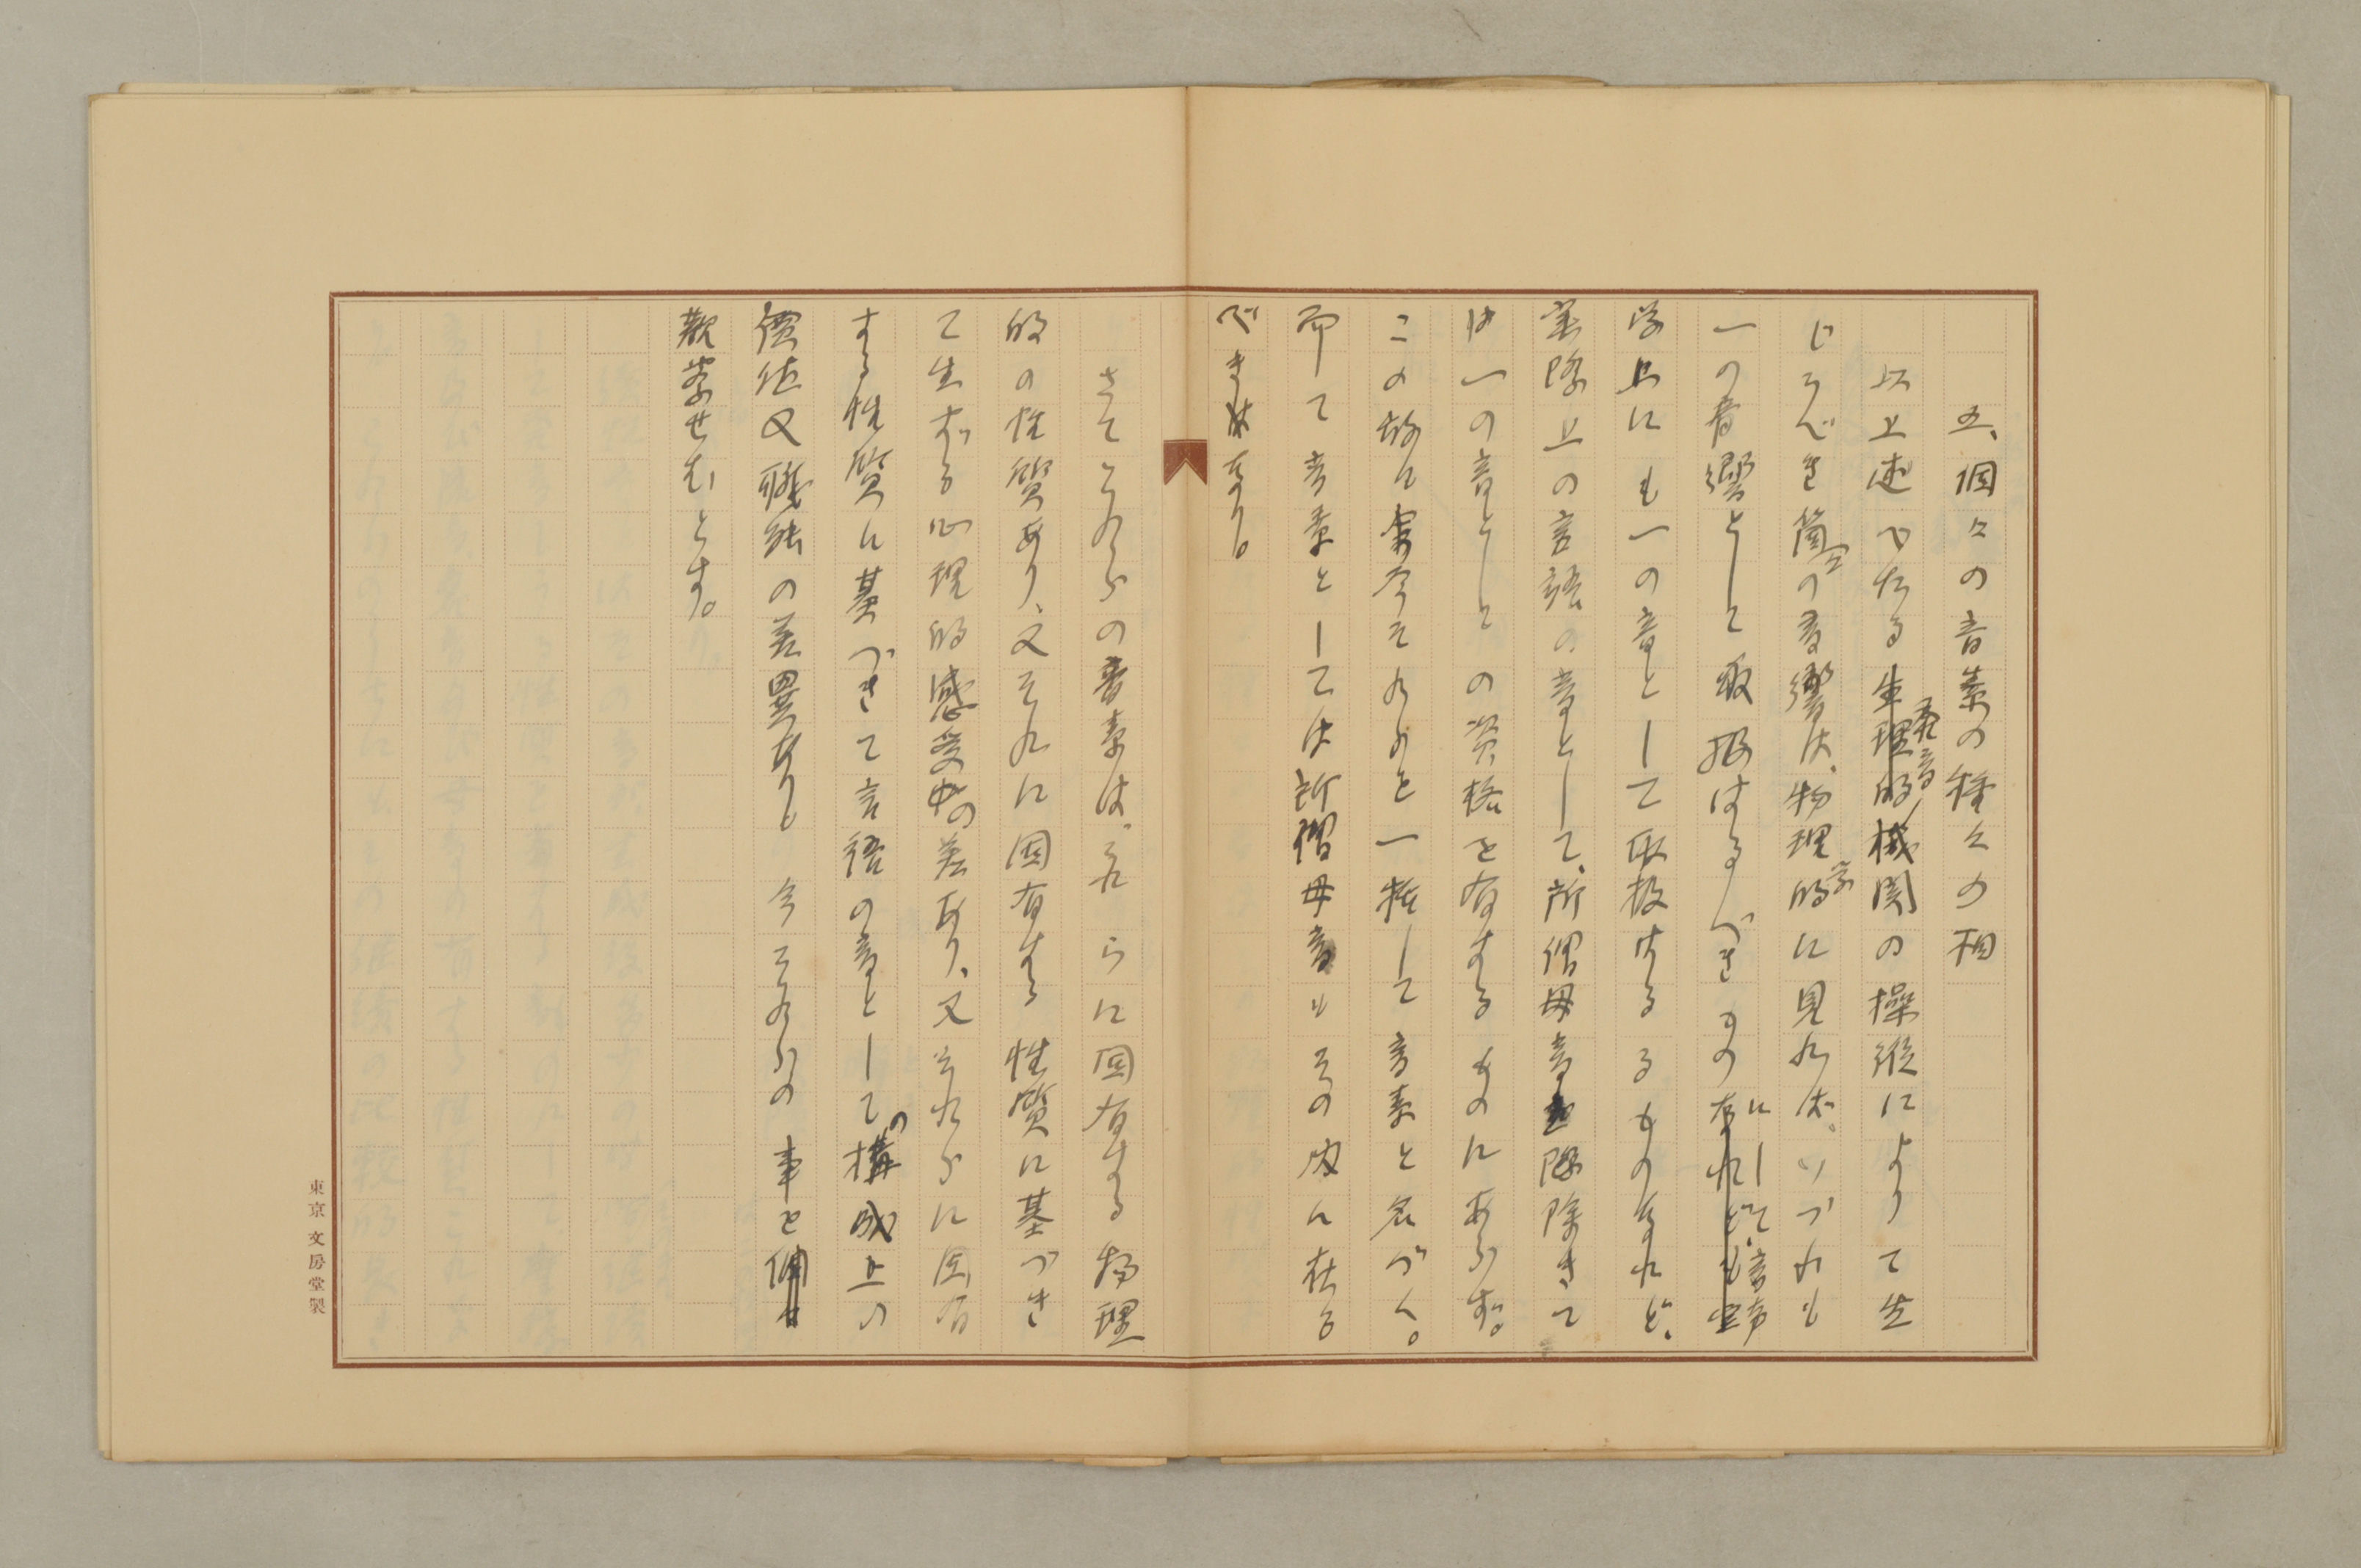 五、個々の音素の種々の相
以上述べたる発音機関の操縦によりて生
じうべき箇々の音響は、物理学的に見れば、いづれも
一の音響として取扱はるべきものにして、音声
学上にも一の音として取扱はるるものなれど、
実際上の言語の音として、所謂母音を除きて
は一の音としての資格を有するものにあらず。
この故に今それらを一括して音素と名づく。
而して音素としては所謂母音もその内に在る
べきなり。
さてこれらの音素は、それらに固有する物理
的の性質あり、又それに固有する性質に基づき
て生ずる心理的感受の差あり、又それらに固有
する性質に基づきて言語の音としての構成上の
価値又職能の差異あり。今これらの事を
観察せむとす。
東京 文房堂製